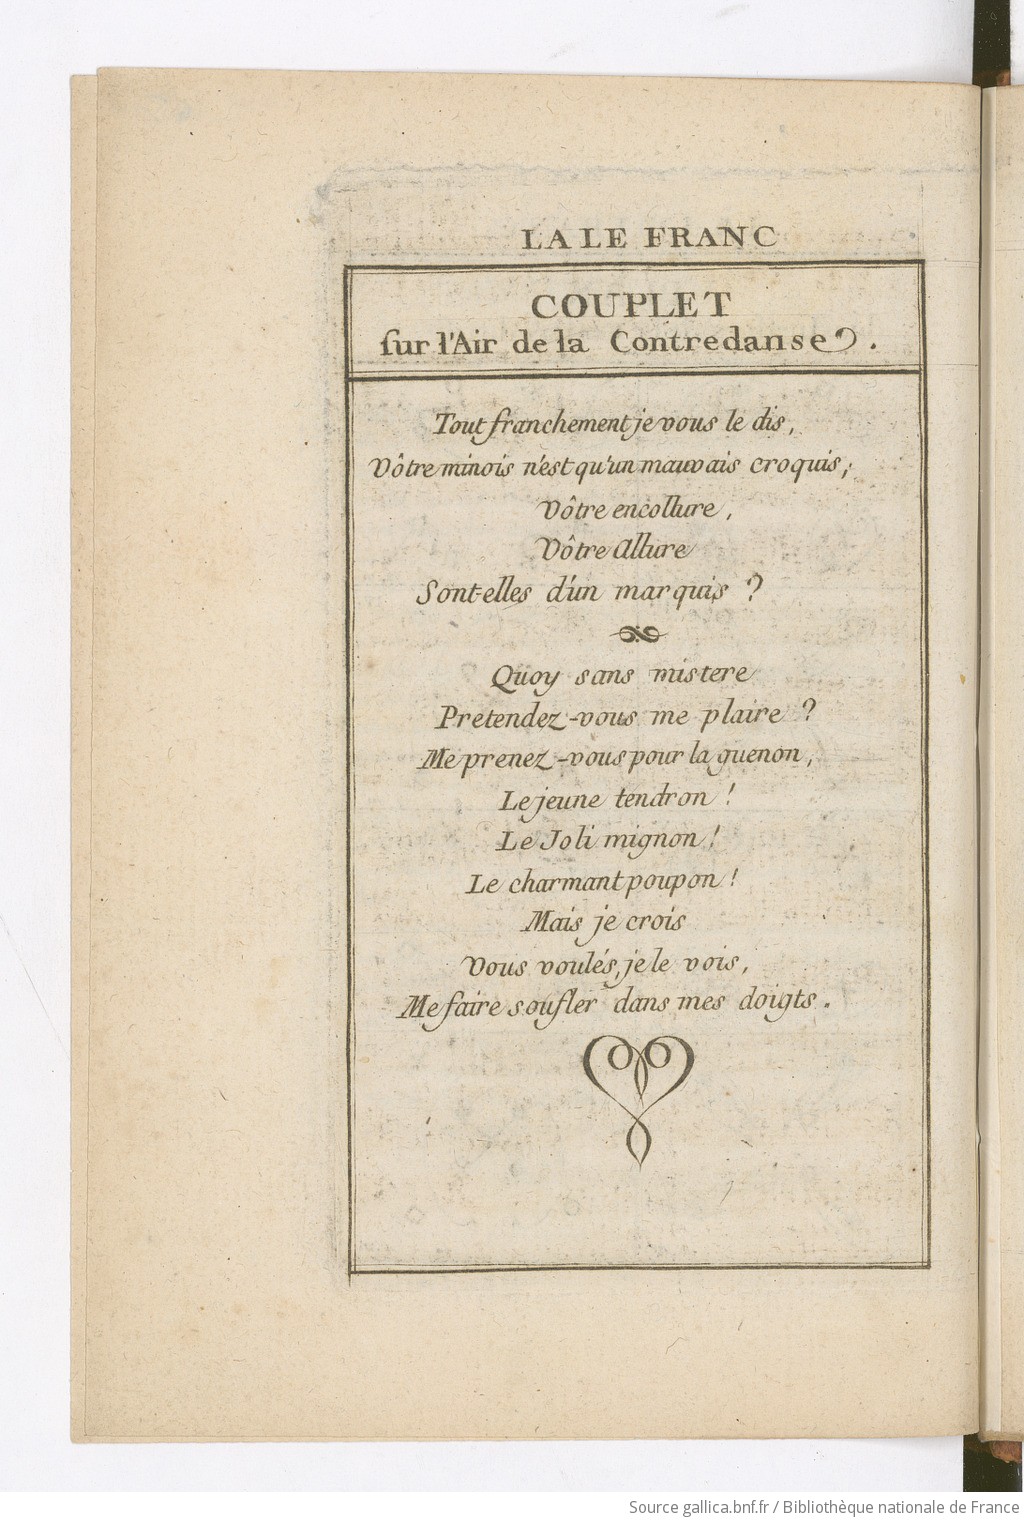 LA LE FRANC
COUPLET
sur l'Air de la Contredanse.
Tout franchement je vous le dis,
Vôtre minois n'est qu'un mauvais croquis;
Vôtre encollure,
Vôtre Allure
Sont-elles d'un marquis ?
Quoy sans mistere
Pretendez-vous me plaire ?
Me prenez-vous pour la guenon,
Le jeune tendron !
Le Joli mignon !
Le charmant poupon !
Mais je crois
Vous voulés, je le vois,
Me faire soufler dans mes doigts.
Source gallica.bnf.fr / Bibliothèque nationale de France